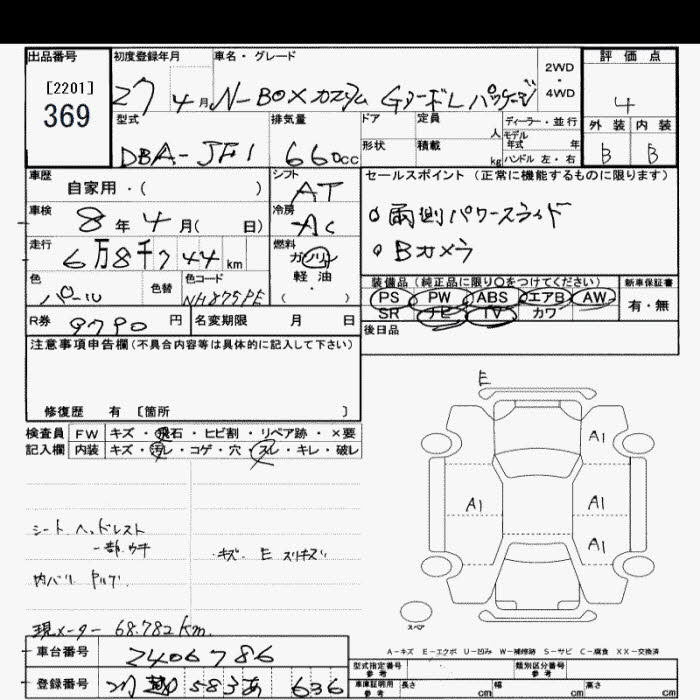 出品番号 初度登録年月 車名・グレード 2WD・4WD 評価点
[2201]
369
27 4月 N-BOXカスタム GターボLパッケージ 4
型式 排気量 ドア 定員 人 ディーラー・並行 外装 内装
DBA-JF1 660cc 形状 積載 kg モデル年式 年 ハンドル 左・右 B B
車歴 シフト セールスポイント(正常に機能するものに限ります)
自家用・( ) AT
車検 冷房 両側パワースライド
8年4月( 日) AC
走行 燃料 Bカメラ
6万8千744km ガソリン
軽油
・( )
色 色替 色コード 装備品(純正品に限り○をつけてください) 新車保証書
パール NH875PE PS PW ABS エアB AW 有・無
SR ナビ TV カワ
R券 9790円 名変期限 月 日 後日品
注意事項申告欄(不具合内容等は具体的に記入して下さい)
修復歴 有 [箇所 ]
検査員 FW キズ・飛石・ヒビ割・リペア跡・×要
記入欄 内装 キズ・汚レ・コゲ・穴・スレ・キレ・破レ
E
A1
A1 A1
A1
シート ヘッドレスト
一部ウキ キズ E スリキズ
内バリ
現メーター 68.782km
スペア
A-キズ E-エクボ U-凹み W-補修跡 S-サビ C-腐食 XX-交換済
車台番号 2406786 型式指定番号 参考 類別区分番号 参考
登録番号 583あ 636 車庫証明用 参考 長さ cm 幅 cm 高さ cm